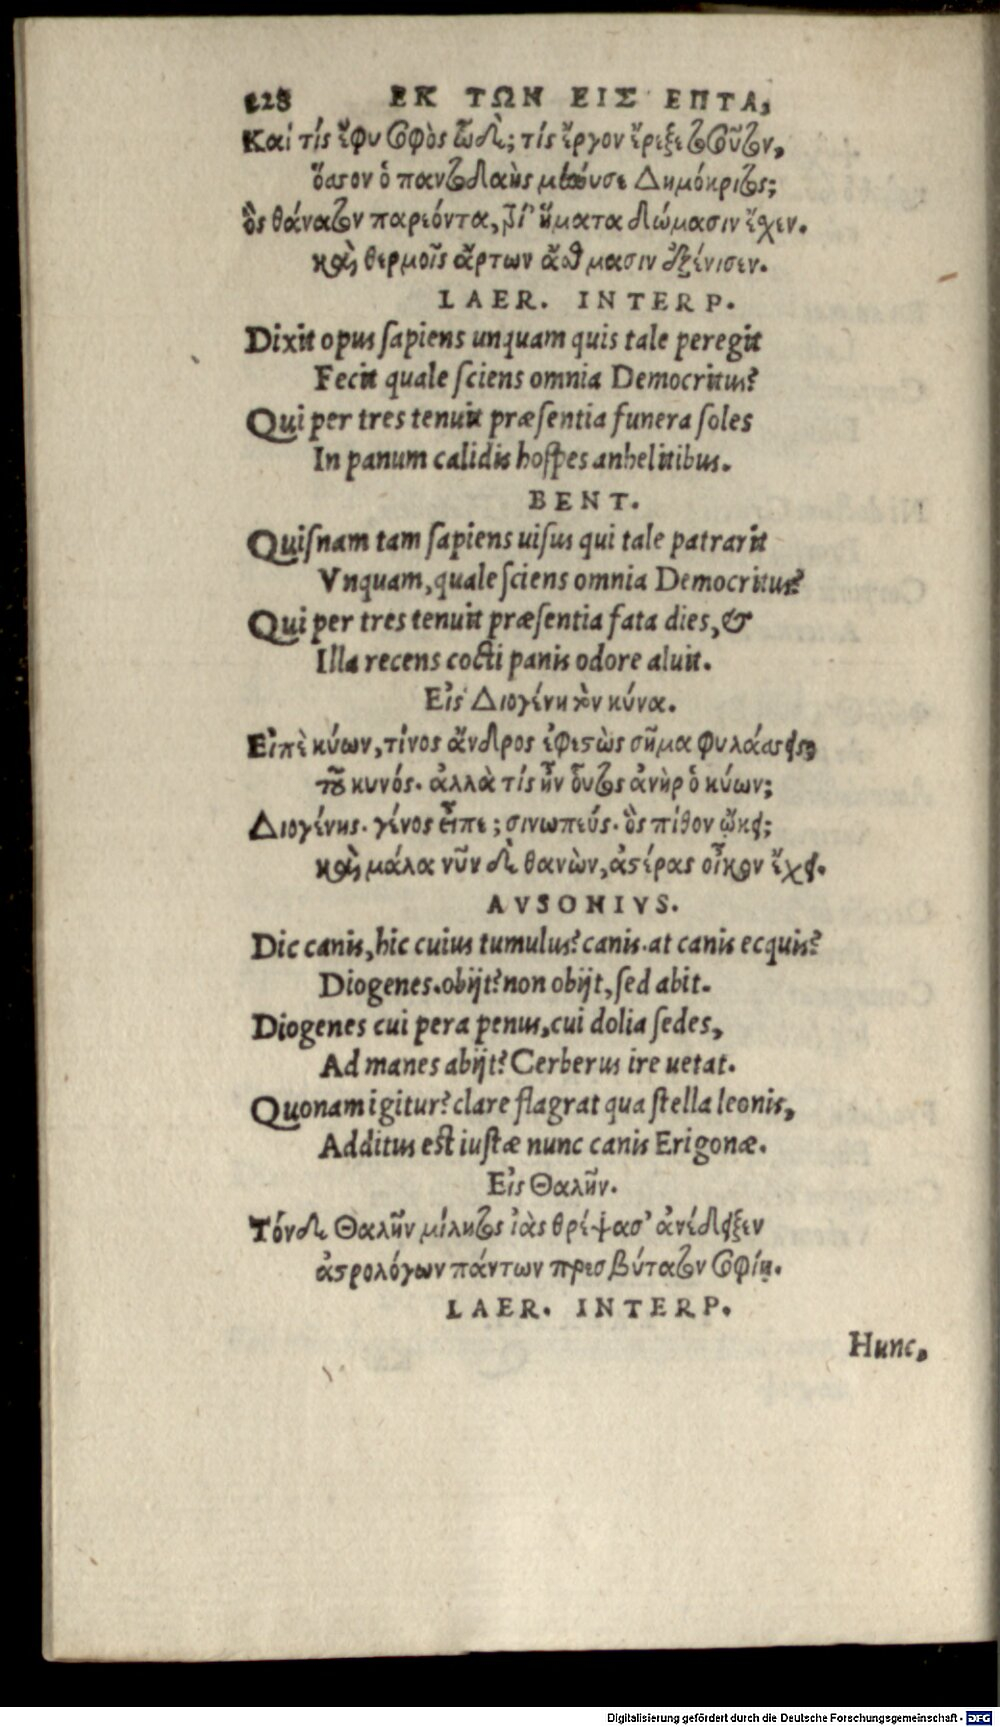 228 ΕΚ ΤΩΝ ΕΙΣ ΕΠΤΑ,
Καί τίς ἔφυ σοφὸς ὧδε; τίς ἔργον ἔρεξε τοσοῦτον,
ὅσσον ὁ παντοδαὴς μήνυσε Δημόκριτος;
ὃς θάνατον παρεόντα, τρί' ἤματα δώμασιν ἔχεν.
καὶ θερμοῖς ἄρτων ἄσθμασιν ἐξένισεν.
LAER. INTERP.
Dixit opus sapiens unquam quis tale peregit
Fecit quale sciens omnia Democritus?
Qui per tres tenuit præsentia funera soles
In panum calidis hospes anhelitibus.
BENT.
Quisnam tam sapiens uisus qui tale patrarit
Vnquam, quale sciens omnia Democritus?
Qui per tres tenuit præsentia fata dies, &
Illa recens cocti panis odore aluit.
Εἰς Διογένη τὸν κύνα.
Εἰπὲ κύων, τίνος ἀνδρος ἐφεστὼς σῆμα φυλάσσεις,
τοῦ κυνός. ἀλλὰ τίς ἦν οὗτος ἀνὴρ ὁ κύων;
Διογένης. γένος εἶπε; σινωπεύς. ὃς πίθον ᾤκει;
καὶ μάλα νῦν δὲ θανὼν, ἀστέρας οἶκον ἔχει.
AVSONIVS.
Dic canis, hic cuius tumulus? canis. at canis ecquis?
Diogenes. obijt? non obijt, sed abit.
Diogenes cui pera penus, cui dolia sedes,
Ad manes abijt? Cerberus ire uetat.
Quonam igitur? clare flagrat qua stella leonis,
Additus est iustæ nunc canis Erigonæ.
Εἰς Θαλῆν.
Τόνδε Θαλῆν μίλητος ἰὰς θρέψασ' ἀνέδειξεν
ἀστρολόγων πάντων πρεσβύτατον σοφίῃ.
LAER. INTERP.
Hunc,
Digitalisierung gefördert durch die Deutsche Forschungsgemeinschaft - DFG